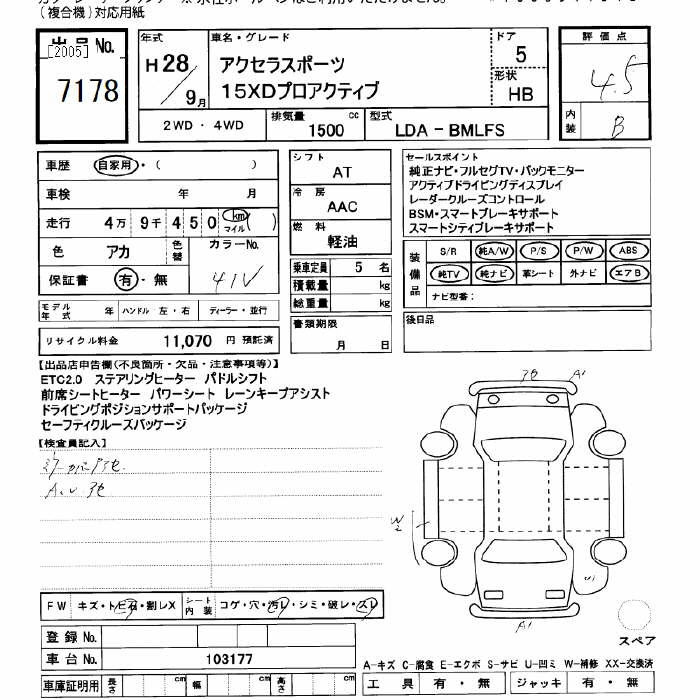 (複合機)対応用紙
出品 No.
[2005]
7178
年式
H28/9月
車名・グレード
アクセラスポーツ
15XDプロアクティブ
ドア
5
形状
HB
評価点
4.5
内装
B
2WD ・ 4WD
排気量
1500
cc
型式
LDA - BMLFS
車歴 自家用・( )
車検 年 月
走行 4万 9千 4 5 0 km マイル ( )
色 アカ 色替 カラーNo.
41V
保証書 有 - 無
シフト
AT
冷房
AAC
燃料
軽油
乗車定員 5 名
積載量 kg
総重量 kg
書類期限
月 日
セールスポイント
純正ナビ・フルセグTV・バックモニター
アクティブドライビングディスプレイ
レーダークルーズコントロール
BSM・スマートブレーキサポート
スマートシティブレーキサポート
装備品
S/R 純A/W P/S P/W ABS
純TV 純ナビ 革シート 外ナビ エアB
ナビ型番:
後日品
モデル年式 年 ハンドル 左・右 ディーラー・並行
リサイクル料金 11,070 円 預託済
【出品店申告欄(不良箇所・欠品・注意事項等)】
ETC2.0 ステアリングヒーター パドルシフト
前席シートヒーター パワーシート レーンキープアシスト
ドライビングポジションサポートパッケージ
セーフティクルーズパッケージ
【検査員記入】
A1
W2
A1
FW キズ・トビ石・割レX シート内装 コゲ・穴・汚レ・シミ・破レ・スレ
登録 No.
車台 No. 103177
車庫証明用 長さ cm 幅 cm 高さ cm
スペア
A-キズ C-腐食 E-エクボ S-サビ U-凹ミ W-補修 XX-交換済
工具 有・無 ジャッキ 有・無